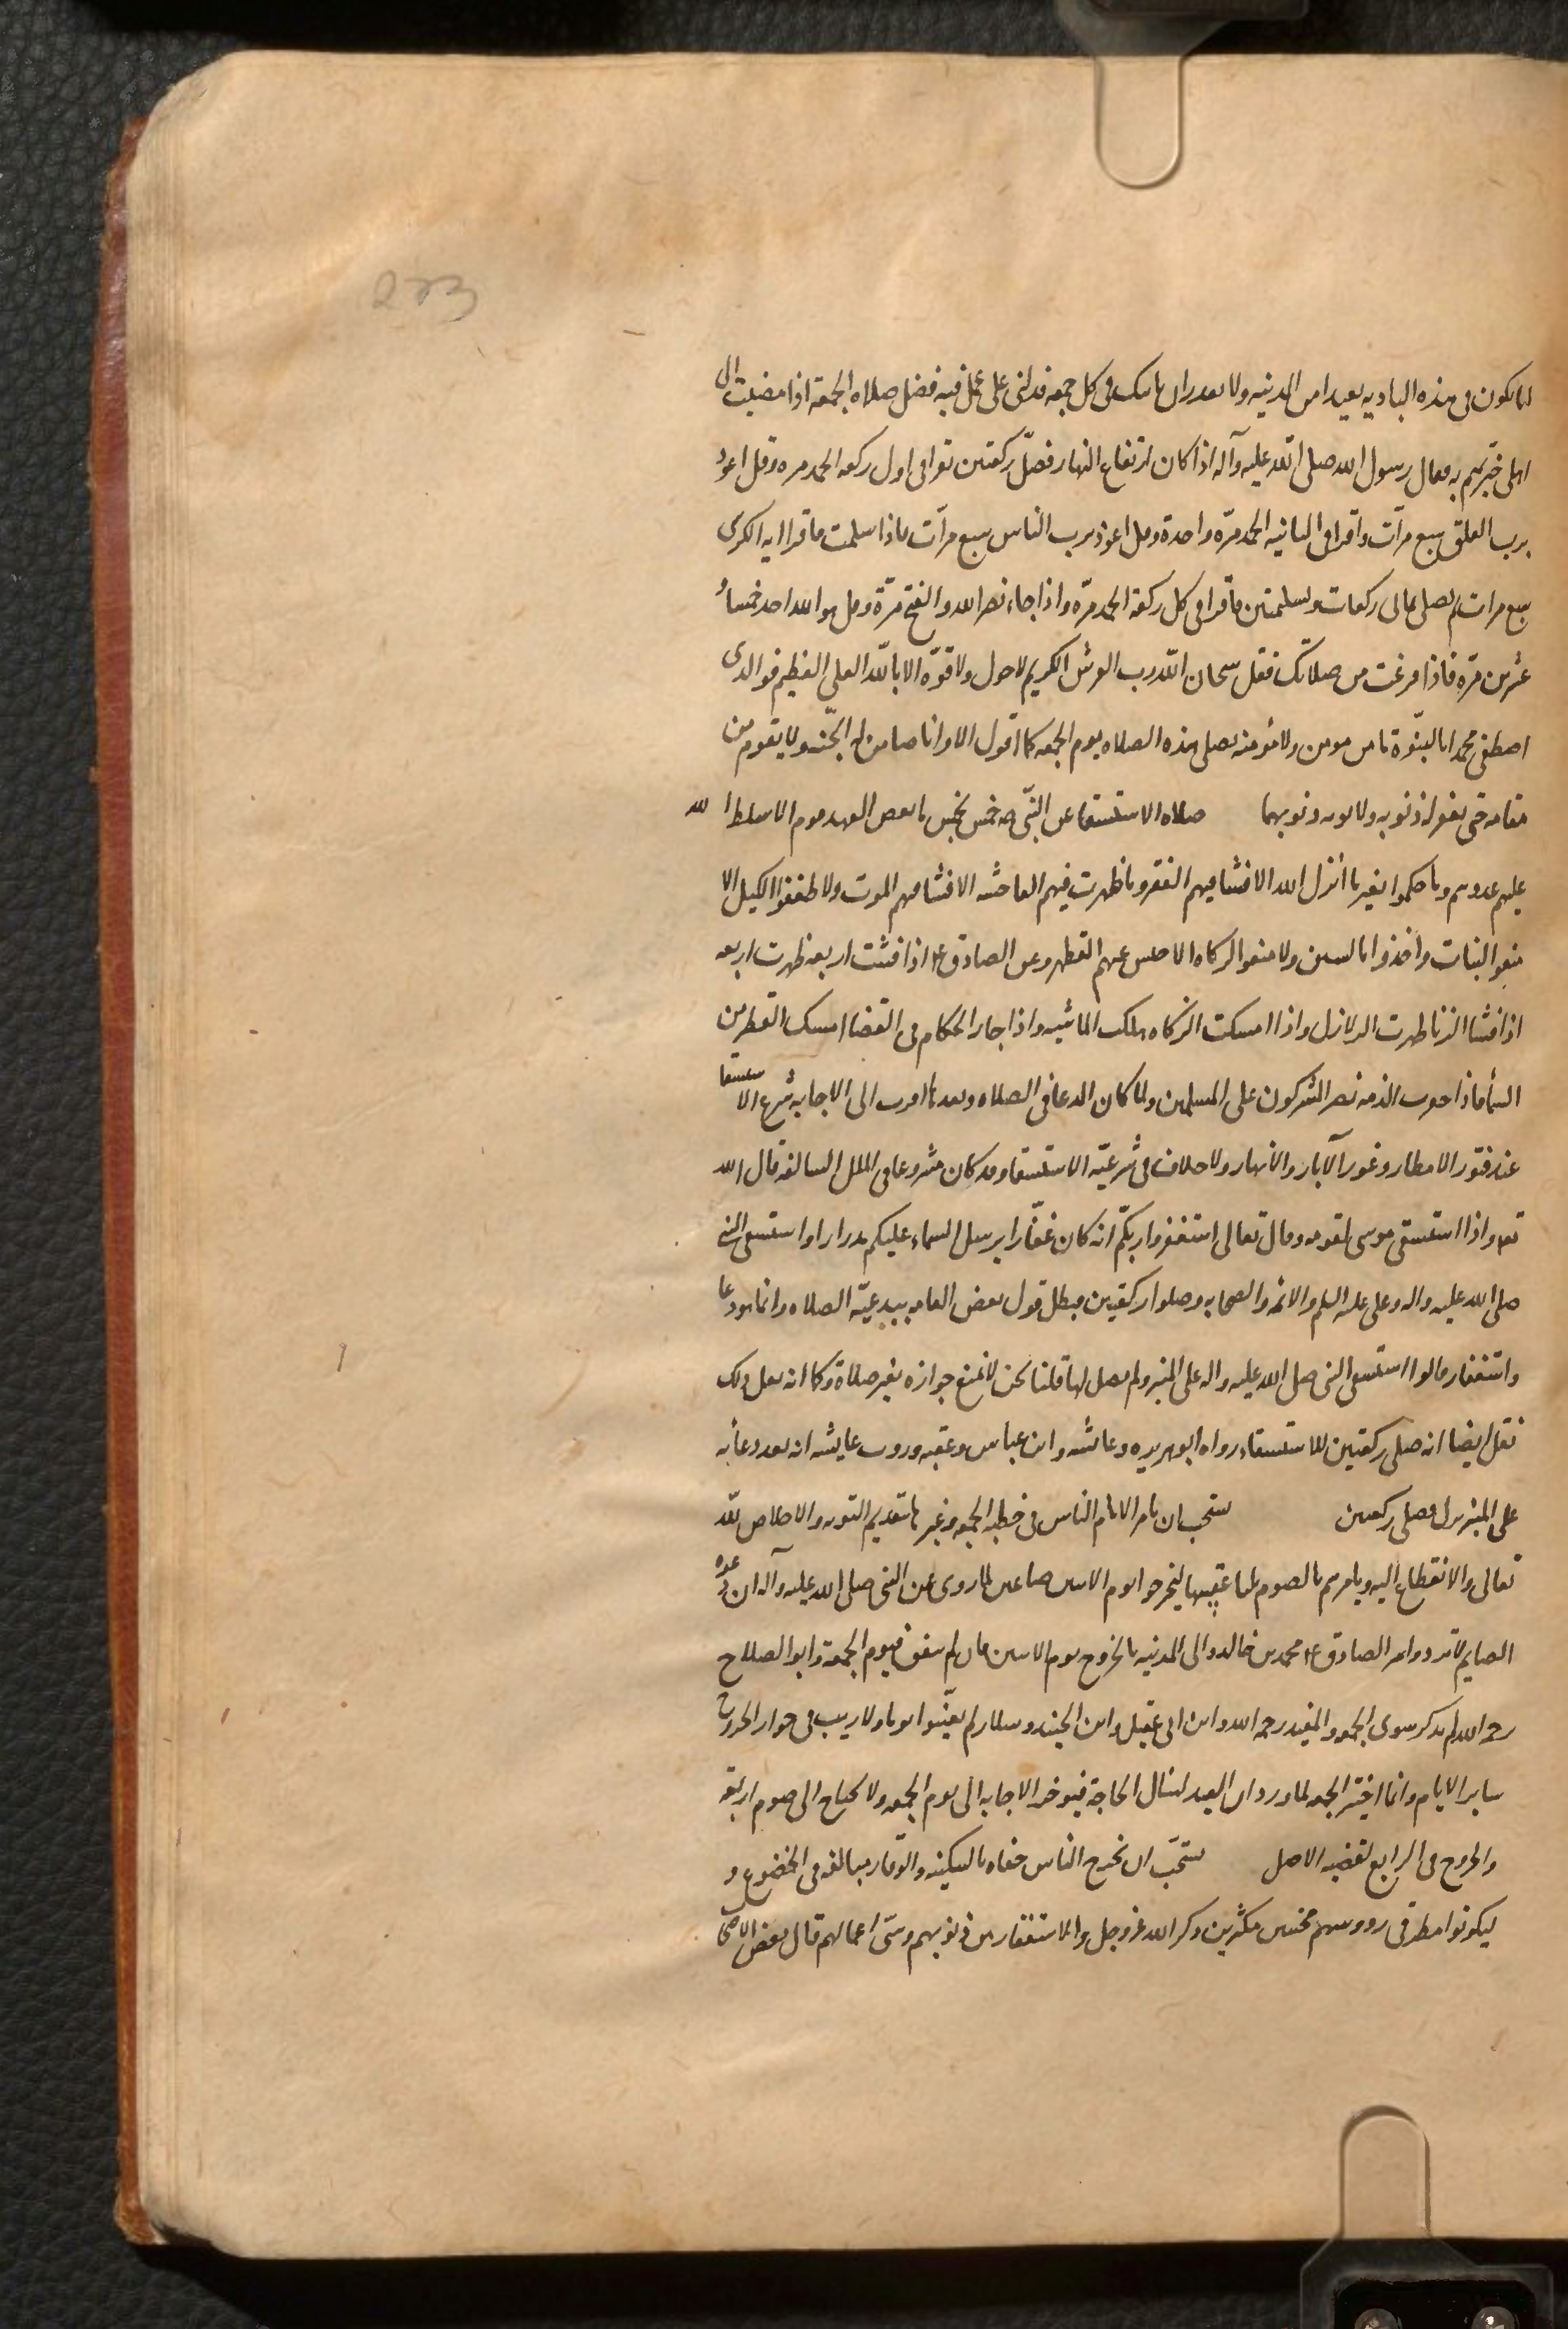 انا نكون فى هذه الباديه بعيدا من المدينه ولا نقدر ان ناتيك فى كل جمعه فدلنى على عمل فيه فضل صلاه الجمعة اذا مضيت الى
اهلى خبرتهم به فقال رسول الله صلى الله عليه وآله اذا كان ارتفاع النهار فصلّ ركعتين تقرا فى اول ركعه الحمد مره وقل اعوذ
برب الفلق سبع مرآت واقرا فى الثانيه الحمد مرّه واحدة وقل اعوذ برب الناس سبع مرآت فاذا سلمت فاقرا ايه الكرسى
سبع مرات ثم تصلى ثمانى ركعات وتسليمتين واقرا فى كل ركعه الحمد مرّه واذا جاء نصر الله والفتح مرّة وقل هو الله احد خمسا و
عشرين مرّه فاذا فرغت من صلاتك فقل سبحان الله رب العرش الكريم لا حول ولا قوّه الا بالله العلى العظيم فو الذى
اصطفى محمدا بالنبوّة ما من مومن ولا مؤمنه يصلى هذه الصلاه يوم الجمعه كما اقول الا وانا ضامن له الجنّه ولا يقوم من
مقامه حتى يغفر له ذنوبه ولابويه ذنوبهما صلاه الاستسقا عن النبّى صه خمس بخمس ما نقض العهد قوم الا سلط الله
عليهم عدوهم وما حكموا بغير ما أنزل الله الا فشا فيهم الفقر وما ظهرت فيهم الفاحشه الا فشا فيهم الموت ولا طففوا الكيل الا
منعوا النبات واخذوا بالسنين ولا منعوا الزكاه الا حبس عنهم القطر وعن الصادق ع اذا فشت اربعه ظهرت اربعه
اذا فشا الزنا ظهرت الزلازل واذا امسكت الزكاه هلكت الماشيه واذا جار الحكام فى القضا امسك القطر من
السماء فاذا خفرت الذمه نصر المشركون على المسلمين ولما كان الدعا فى الصلاه وبعدها اقرب الى الاجابه شرع الاستسقا
عند فتور الامطار وغور الآبار والانهار ولا خلاف فى شرعيّه الاستسقا وقد كان مشروعا فى الملل السالفه قال الله
تعه واذا استسقى موسى لقومه وقال تعالى استغفروا ربكم انه كان غفّارا يرسل السماء عليكم مدرارا واستسقى النبى
صلى الله عليه واله وعلى عليه السلم والائمه والصحابه وصلوا ركعتين فبطل قول بعض العامه ببدعيّه الصلاه وانما هو دعا
واستغفار قالوا استسقى النبى صلى الله عليه واله على المنبر ولم يصل لها قلنا نحن لا نمنع جوازه بغير صلاة وكما انه فعل ذلك
نقل ايضا انه صلى ركعتين للاستسقاء رواه ابو هريره وعائشه وابن عباس وعقبه وروت عايشه انه بعد دعائه
على المنبر نزل فصلى ركعتين ستحب ان يامر الامام الناس فى خطبه الجمعه وغيرها بتقديم التوبه والاخلاص لله
تعالى والانقطاع اليه ويامرهم بالصوم ثلثا عقيبها ليخرجوا يوم الاثنين صائمين لما روى عن النبى صلى الله عليه وآله ان دعوه
الصايم لا ترد وامر الصادق ع محمد بن خالد والى المدينه بالخروج يوم الاثنين فان لم يتفق فيوم الجمعة وابو الصلاح
رحمه الله لم يذكر سوى الجمعه والمفيد رحمه الله وابن ابى عقيل وابن الجنيد وسلار لم يعيّنوا يوما ولا ريب فى جواز الخروج
ساير الايام وانما اختير الجمعه لما ورد ان العبد ليسال الحاجة فيؤخر الاجابه الى يوم الجمعه ولا يحتاج الى صوم اربعه
والخروج فى الرابع لقضيه الاصل ستحبّ ان يخرج الناس حفاه بالسكينه والوقار مبالغه فى الخضوع و
ليكونوا مطرقى رووسهم مخبتين مكثرين ذكر الله عز وجل والاستغفار من ذنوبهم وسئ اعمالهم قال بعض الاصحا